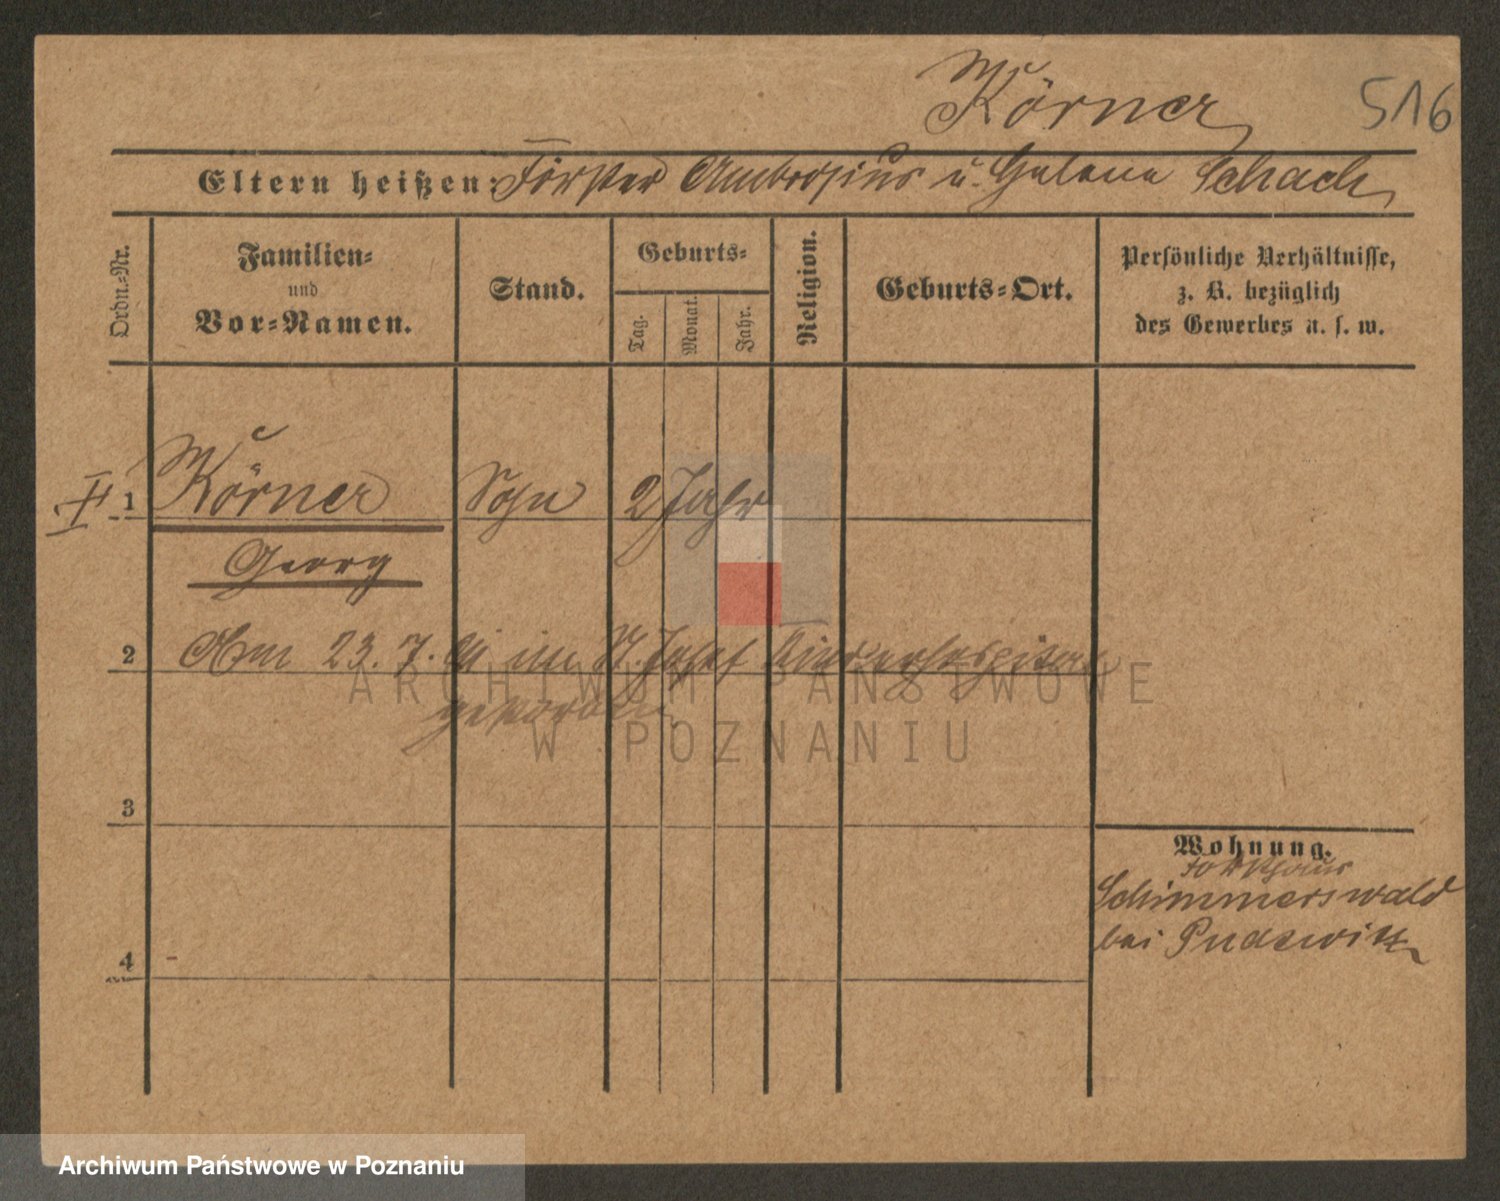 Körner
516
Eltern heißen: Förster Ambrosius u. Helena Schach
Ordn.-Nr.
Familien-
und
Vor-Namen.
Stand.
Geburts-
Tag.
Monat.
Jahr.
Religion.
Geburts-Ort.
Persönliche Verhältnisse,
z. B. bezüglich
des Gewerbes u. s. w.
1 Körner Sohn 2 Jahr
Georg
2 Am 23. 7. im St. Josef Kinderhospital
gestorben
3
Wohnung.
Forsthaus
Schimmerswald
bei Pudewitz
4
ARCHIWUM PAŃSTWOWE
W POZNANIU
Archiwum Państwowe w Poznaniu